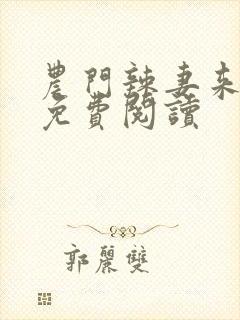 農門辣妻來
免費閱讀
郭麗雙